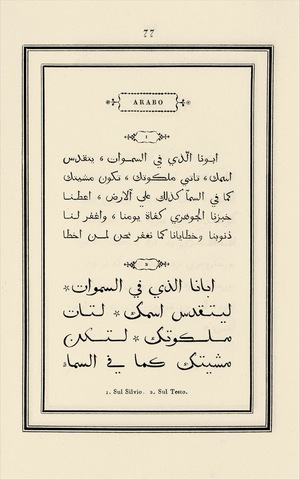 77
ARABO
1
ابونا الّذي في السموات، يتقدس
اسمك، تاتي ملكوتك، تكون مشيتك
كما في السما كذلك علي الارض، اعطنا
خبزنا الجوهري كفاة يومنا، واغفر لنا
ذنوبنا وخطايانا كما نغفر نحن لمن اخطا
2
ابانا الذي في السموات*
ليتقدس اسمك * لتات
ملكوتك * لتكن
مشيتك كما في السماء
1. Sul Silvio. 2. Sul Testo.